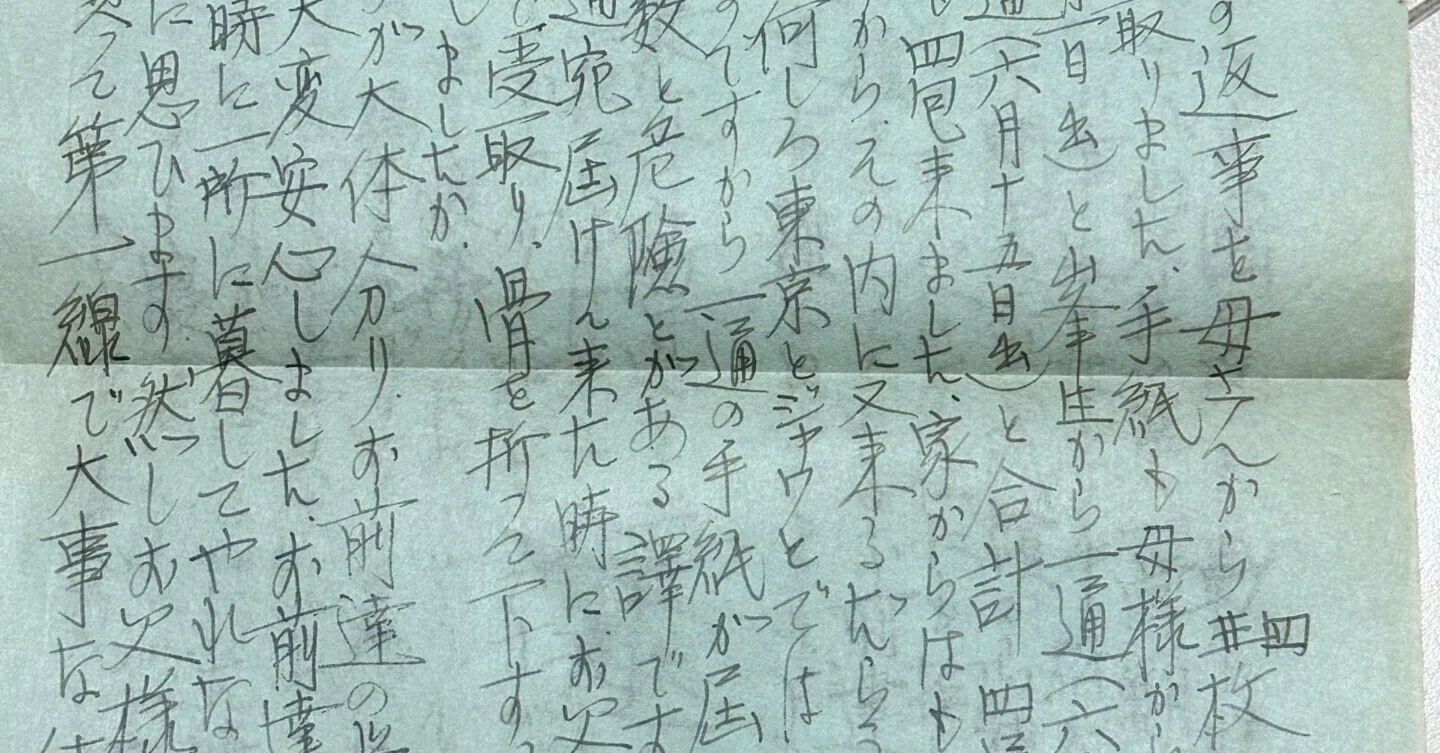 の返事を母さんから四枚
取りました、手紙も母様か
一日出)と出奉生から一通(六
通(六月十五日出)と合計四
も四包来ました、家からはも
から、その内に又来るだらう
何しろ東京とジャワとでは
のですから一通の手紙が届
数と危険とがある譯です
通宛届けん来た時にお父
で受取り、骨を折って下す
しましたか、
が大体分り、お前達の
大変安心しました、お前達
時に一所に暮してやれな
に思ひます、然しお父様
って第一線で大事な